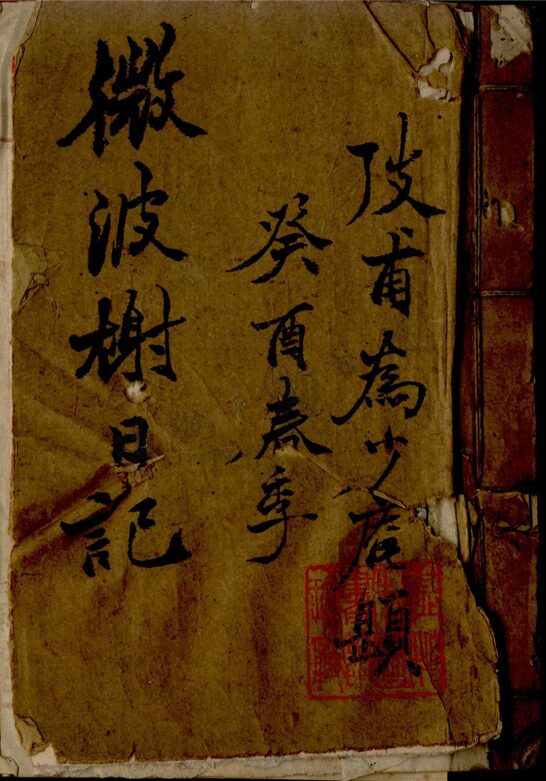 陂甫為少題
癸酉春季
微波榭日記